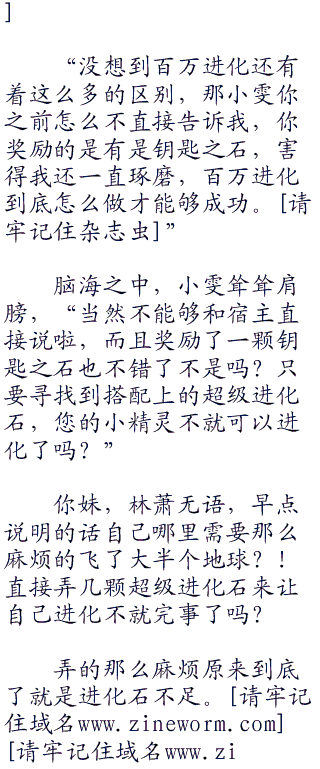 ]
“没想到百万进化还有
着这么多的区别，那小雯你
之前怎么不直接告诉我，你
奖励的是有是钥匙之石，害
得我还一直琢磨，百万进化
到底怎么做才能够成功。[请
牢记住杂志虫]”
脑海之中，小雯耸耸肩
膀，“当然不能够和宿主直
接说啦，而且奖励了一颗钥
匙之石也不错了不是吗？只
要寻找到搭配上的超级进化
石，您的小精灵不就可以进
化了吗？”
你妹，林萧无语，早点
说明的话自己哪里需要那么
麻烦的飞了大半个地球？！
直接弄几颗超级进化石来让
自己进化不就完事了吗？
弄的那么麻烦原来到底
了就是进化石不足。[请牢记
住域名www.zineworm.com]
[请牢记住域名www.zi